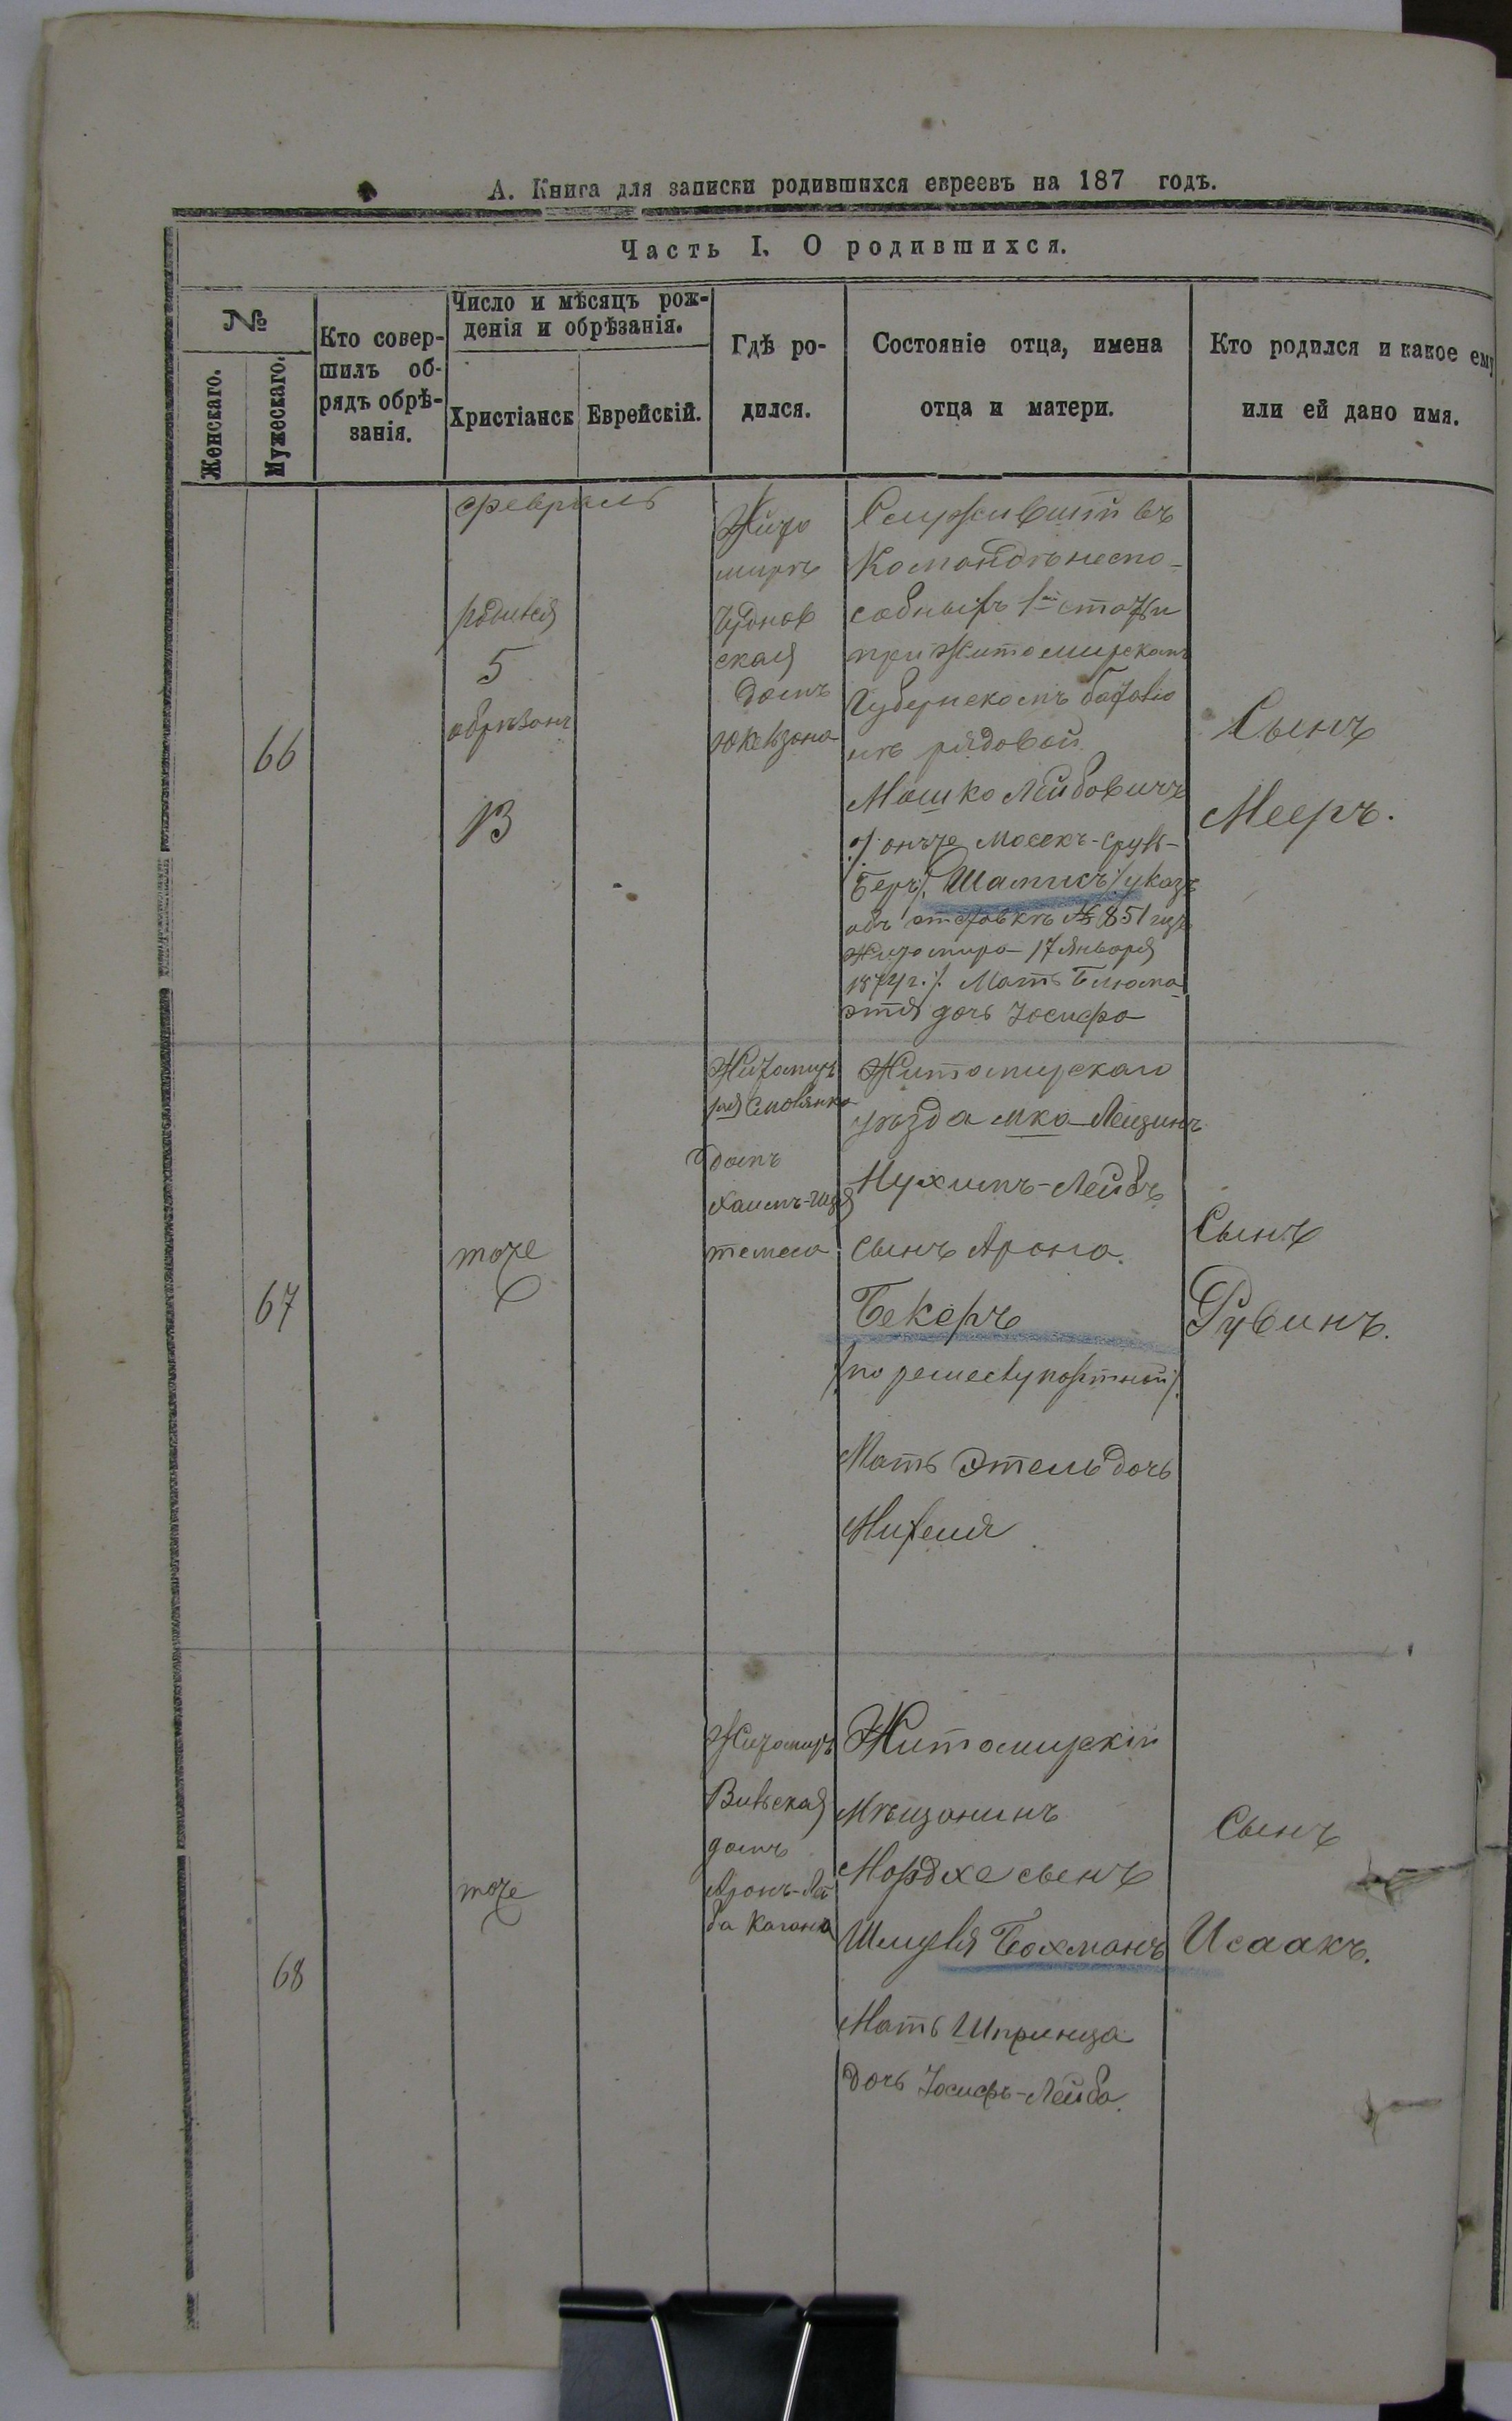 А. Книга для записки родившихся евреевъ на 187 годъ.
Часть I. О родившихся.
№
Женскаго.
Мужескаго.
Кто совер-
шилъ об-
рядъ обрѣ-
занія.
Число и мѣсяцъ рож-
денія и обрѣзанія.
Христіанск
Еврейскій.
Гдѣ ро-
дился.
Состояніе отца, имена
отца и матери.
Кто родился и какое ему
или ей дано имя.
февраль
66
родился
5
обрѣзанъ
Жито
миръ
Чуднов
ская
домъ
Служившій въ
Командѣ неспо-
собныхъ 1й статьи
при Житомирскомъ
Губернскомъ баталіо
нѣ рядовой
Мошко Лейбовичъ
/: онъ же Мосек-Сруль-
Беръ/, Шамисъ /: указъ
объ отставкѣ № 851 изъ
Житомира 17 Января
1874 г. :/. Мать Блюма
Этля дочь Іосифа
Сынъ
Мееръ.
67
тоже
Житомиръ
домъ
Хаимъ-
Житомирскаго
уѣзда мка Лещинъ
Нухимъ-Лейбъ
сынъ Арона.
Бекеръ
/по ремеслу портной/.
Мать Этель дочь
Михеля
Сынъ
Рувинъ.
68
тоже
Житомиръ
Вильская
домъ
Аронъ-Лей
ба Кагана
Житомирскій
Мѣщанинъ
Мордхе сынъ
Шмуля Бохманъ
Мать Шпринца
дочь Іосифъ-Лейба.
Сынъ
Исаакъ.